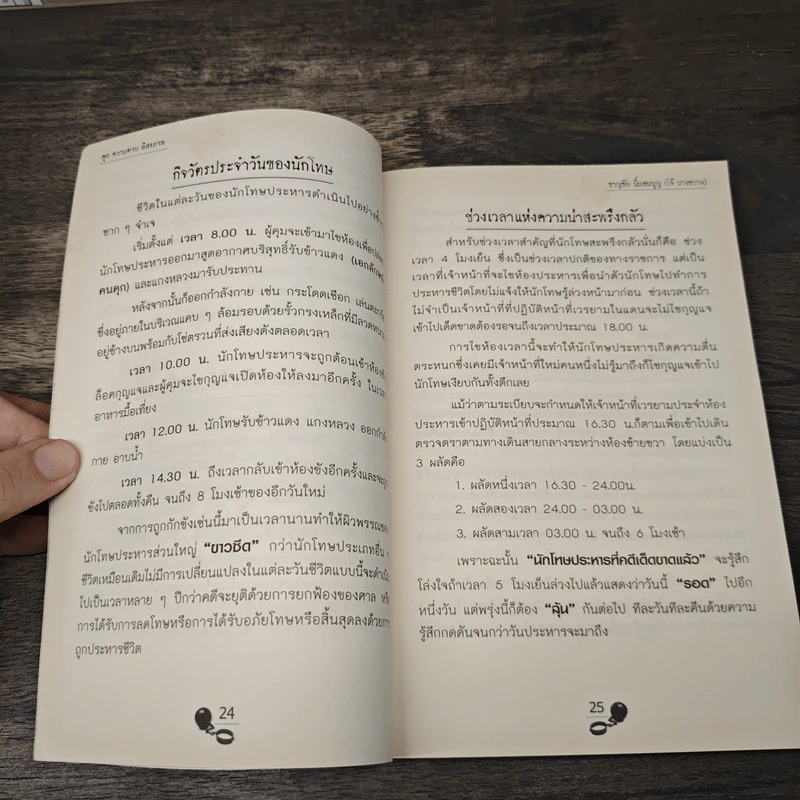 คุก ความตาย อิสรภาพ
กิจวัตรประจำวันของนักโทษ
ชีวิตในแต่ละวันของนักโทษประหารดำเนินไปอย่างซ้ำ
ซาก ๆ จำเจ
เริ่มตั้งแต่ เวลา 8.00 น. ผู้คุมจะเข้ามาไขห้องเพื่อ
นักโทษประหารออกมาสูดอากาศบริสุทธิ์รับข้าวแดง (เอกลักษณ์
คนคุก) และแกงหลวงมารับประทาน
หลังจากนั้นก็ออกกำลังกาย เช่น กระโดดเชือก เล่นตะกร้อ
ซึ่งอยู่ภายในบริเวณแคบ ๆ ล้อมรอบด้วยรั้วกรงเหล็กที่มีลวดหนาม
อยู่ข้างบนพร้อมกับโซ่ตรวนที่ส่งเสียงดังตลอดเวลา
เวลา 10.00 น. นักโทษประหารจะถูกต้อนเข้าห้อง
ล็อคกุญแจและผู้คุมจะไขกุญแจเปิดห้องให้ลงมาอีกครั้ง ในเวลา
อาหารมื้อเที่ยง
เวลา 12.00 น. นักโทษรับข้าวแดง แกงหลวง ออกกำลัง
กาย อาบน้ำ
เวลา 14.30 น. ถึงเวลากลับเข้าห้องขังอีกครั้งและจะถูก
ขังไปตลอดทั้งคืน จนถึง 8 โมงเช้าของอีกวันใหม่
จากการถูกกักขังเช่นนี้มาเป็นเวลานานทำให้ผิวพรรณของ
นักโทษประหารส่วนใหญ่ “ขาวซีด” กว่านักโทษประเภทอื่น ๆ
ชีวิตเหมือนเดิมไม่มีการเปลี่ยนแปลงในแต่ละวันชีวิตแบบนี้จะดำเนิน
ไปเป็นเวลาหลาย ๆ ปีกว่าคดีจะยุติด้วยการยกฟ้องของศาล หรือ
การได้รับการลดโทษหรือการได้รับอภัยโทษหรือสิ้นสุดลงด้วยการ
ถูกประหารชีวิต
24
ชาญชัย นิ่มสมบุญ (เจ๊ บางขวาง)
ช่วงเวลาแห่งความน่าสะพรึงกลัว
สำหรับช่วงเวลาสำคัญที่นักโทษสะพรึงกลัวนั่นก็คือ ช่วง
เวลา 4 โมงเย็น ซึ่งเป็นช่วงเวลาปกติของทางราชการ แต่เป็น
เวลาที่เจ้าหน้าที่จะไขห้องประหารเพื่อนำตัวนักโทษไปทำการ
ประหารชีวิตโดยไม่แจ้งให้นักโทษรู้ล่วงหน้ามาก่อน ช่วงเวลานี้ถ้า
ไม่จำเป็นเจ้าหน้าที่ที่ปฏิบัติหน้าที่เวรยามในแดนจะไม่ไขกุญแจ
เข้าไปเด็ดขาดต้องรอจนถึงเวลาประมาณ 18.00 น.
การไขห้องเวลานี้จะทำให้นักโทษประหารเกิดความตื่น
ตระหนกซึ่งเคยมีเจ้าหน้าที่ใหม่คนหนึ่งไม่รู้มาถึงก็ไขกุญแจเข้าไป
นักโทษเงียบกันทั้งตึกเลย
แม้ว่าตามระเบียบจะกำหนดให้เจ้าหน้าที่เวรยามประจำห้อง
ประหารเข้าปฏิบัติหน้าที่ประมาณ 16.30 น.ก็ตามเพื่อเข้าไปเดิน
ตรวจตราตามทางเดินสายกลางระหว่างห้องซ้ายขวา โดยแบ่งเป็น
3 ผลัดคือ
1. ผลัดหนึ่งเวลา 16.30 - 24.00น.
2. ผลัดสองเวลา 24.00 - 03.00 น.
3. ผลัดสามเวลา 03.00 น. จนถึง 6 โมงเช้า
เพราะฉะนั้น “นักโทษประหารที่คดีเด็ดขาดแล้ว” จะรู้สึก
โล่งใจถ้าเวลา 5 โมงเย็นล่วงไปแล้วแสดงว่าวันนี้ “รอด” ไปอีก
หนึ่งวัน แต่พรุ่งนี้ก็ต้อง “ลุ้น” กันต่อไป ทีละวันทีละคืนด้วยความ
รู้สึกกดดันจนกว่าวันประหารจะมาถึง
25